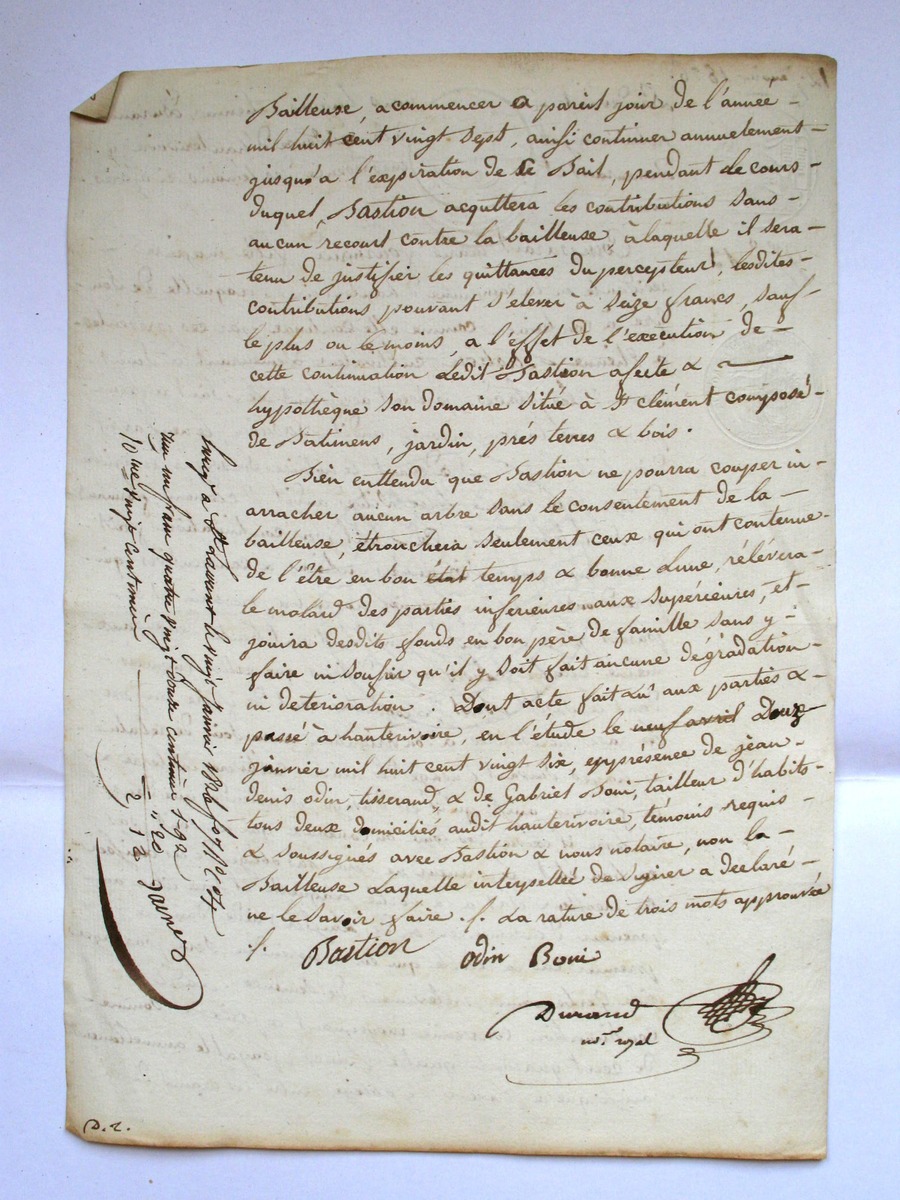 Bailleuse, a commencer a pareil jour de l'année -
mil huit cent vingt sept, ainsi continuer annuelement -
jusqu'a l'expiration de ce Bail, pendant le cours -
duquel, Bastion acquttera les contributions sans -
aucun recourt contre la bailleuse, à laquelle il sera -
tenu de justifier les quittances du percepteur, lesdites -
contributions pouvant s'elever à seize francs, sauf -
le plus ou le moins, a l'effet de l'exécution de -
cette continuation Ledit Bastion afecte & -
hypothèque son domaine situé à St clément composé -
de Batimens, jardin, prés terres & bois.
Bien enttendu que Bastion ne pourra couper ni -
arracher aucun arbre sans le consentement de la -
bailleuse, étronchera seulement ceux qui ont contenue -
de l'être en bon état temps & bonne Lune, rélévera -
le molard des parties inferieures aux supérieures, et -
jouira desdits fonds en bon père de famille sans y -
faire ni soufrir qu'il y soit fait aucune dégradation -
ni deterioration. Dont acte fait Lû aux parties & -
passé à hauterivoire, en l'étude le neuf avril Douze
janvier mil huit cent vingt six, en présence de jean -
denis odin, tisserand, & de Gabriel Boni, tailleur d'habits -
tous deux domiciliés audit hauterivoire, témoins requis -
& soussignés avec Bastion & nous notaire, non la -
Bailleuse Laquelle interpellée de signer a déclaré -
ne le savoir faire ./. La rature de trois mots approuvée
./. Bastion odin Boni
Durand
not. royal
à St Laurent le vingt janvier
un franc quatre vingt douze centimes 1-92
10me vingt centimes "20
2,12
D. 2.